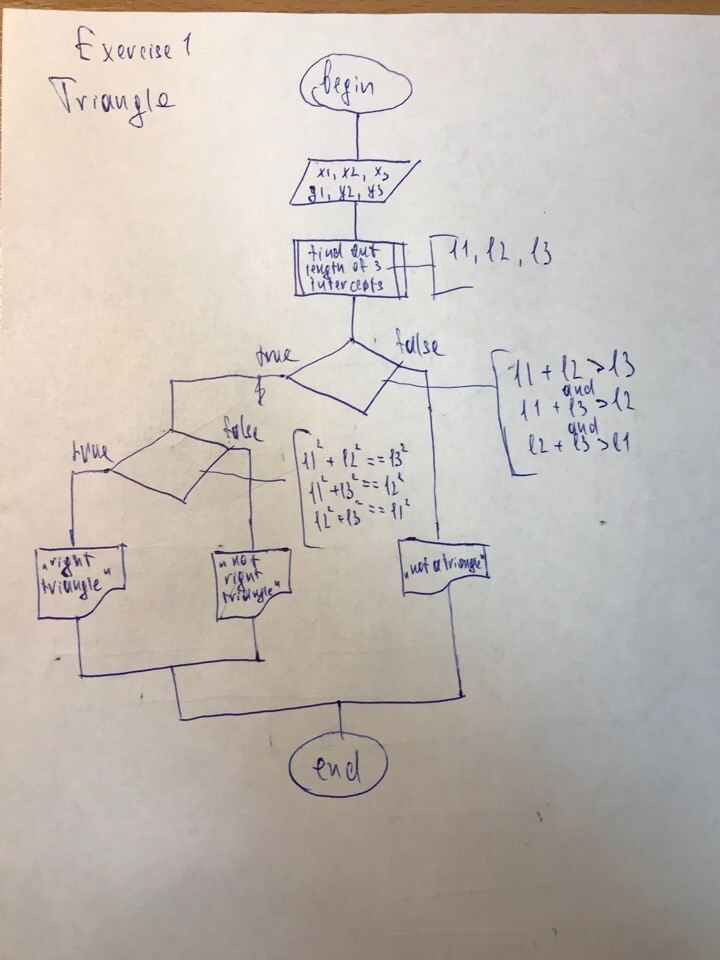 Exercise 1
Triangle
begin
x1, x2, x3
y1, y2, y3
find out
length of 3
intercepts
l1, l2, l3
true
false
l1 + l2 > l3
and
l1 + l3 > l2
and
l2 + l3 > l1
true
false
l1² + l2² == l3²
l1² + l3² == l2²
l2² + l3² == l1²
„right
triangle"
„not
right
triangle"
„not a triangle"
end